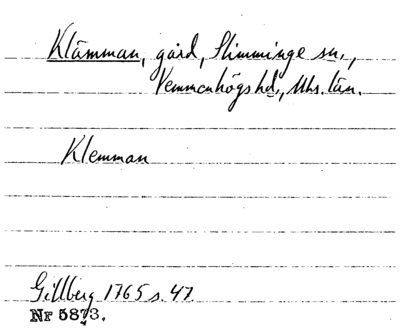 Klämman, gård, Slimminge sn.,
Vemmenhögs hd., Mhs. län.
Klemman
Gillberg 1765 s. 47.
Nr 5873.